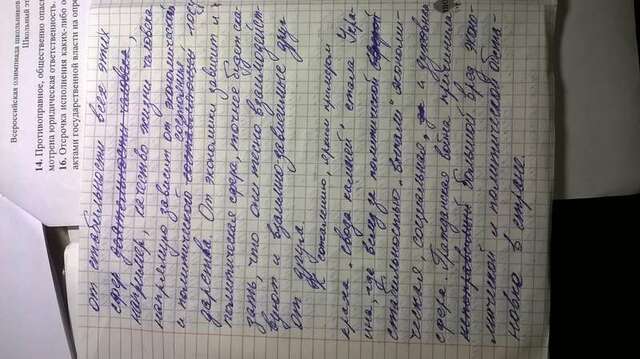 Всероссийская олимпиада школьников
Школьный эт
14. Противоправное, общественно опас
мотрена юридическая ответственность.
16. Отсрочка исполнения каких-либо о
актами государственной власти на опре
от стабильности всех этих
сфер
например, качество жизни человека
напрямую зависит от экономической
и политического состояния госу
дарства. От экономики зависит и
политическая сфера, точнее будет ска-
зать, что они тесно взаимодейст-
вуют и взаимозависимые друг
от друга.
К сожалению, ярким примером
краха „свода камней" стала Укра-
ина, где вслед за политической
стабильностью „выпали" экономи-
ческая, социальная, и духовная
сфера. Гражданская война причинила
большой вред эконо-
мической и политической обста-
новке в стране.